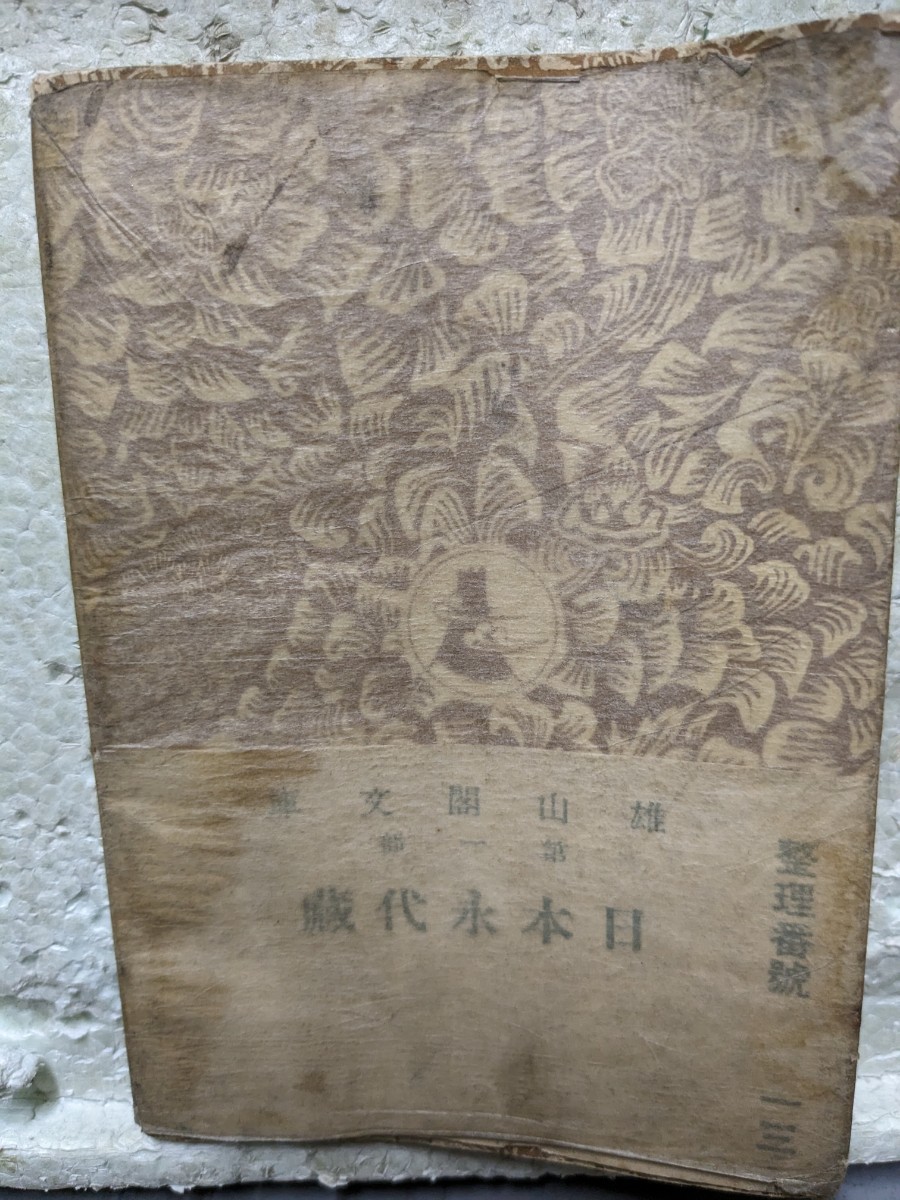 雄山閣文庫
第一部
日本永代藏
整理番號 一三